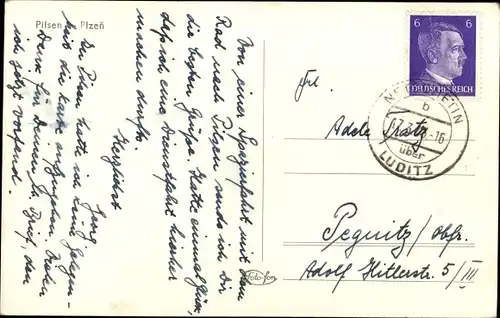 Pilsen Plzeň
Von einer Spazierfahrt mit dem
Rad nach Pilsen sende ich Dir
die besten Grüße. Hatte einmal Glück,
daß ich eine Dienstfahrt hierher
machen durfte.
Herzlichst
Georg
In Pilsen hatte ich keine Gelegen-
heit die Karte aufzugeben. Vielen
Dank für Deinen Brief, den
ich jetzt vorfand.
Foto-fon
6 6
DEUTSCHES REICH
b
-16
über
LUDITZ
Frl.
Adele
Pegnitz/Obfr.
Adolf Hitlerstr. 5/III